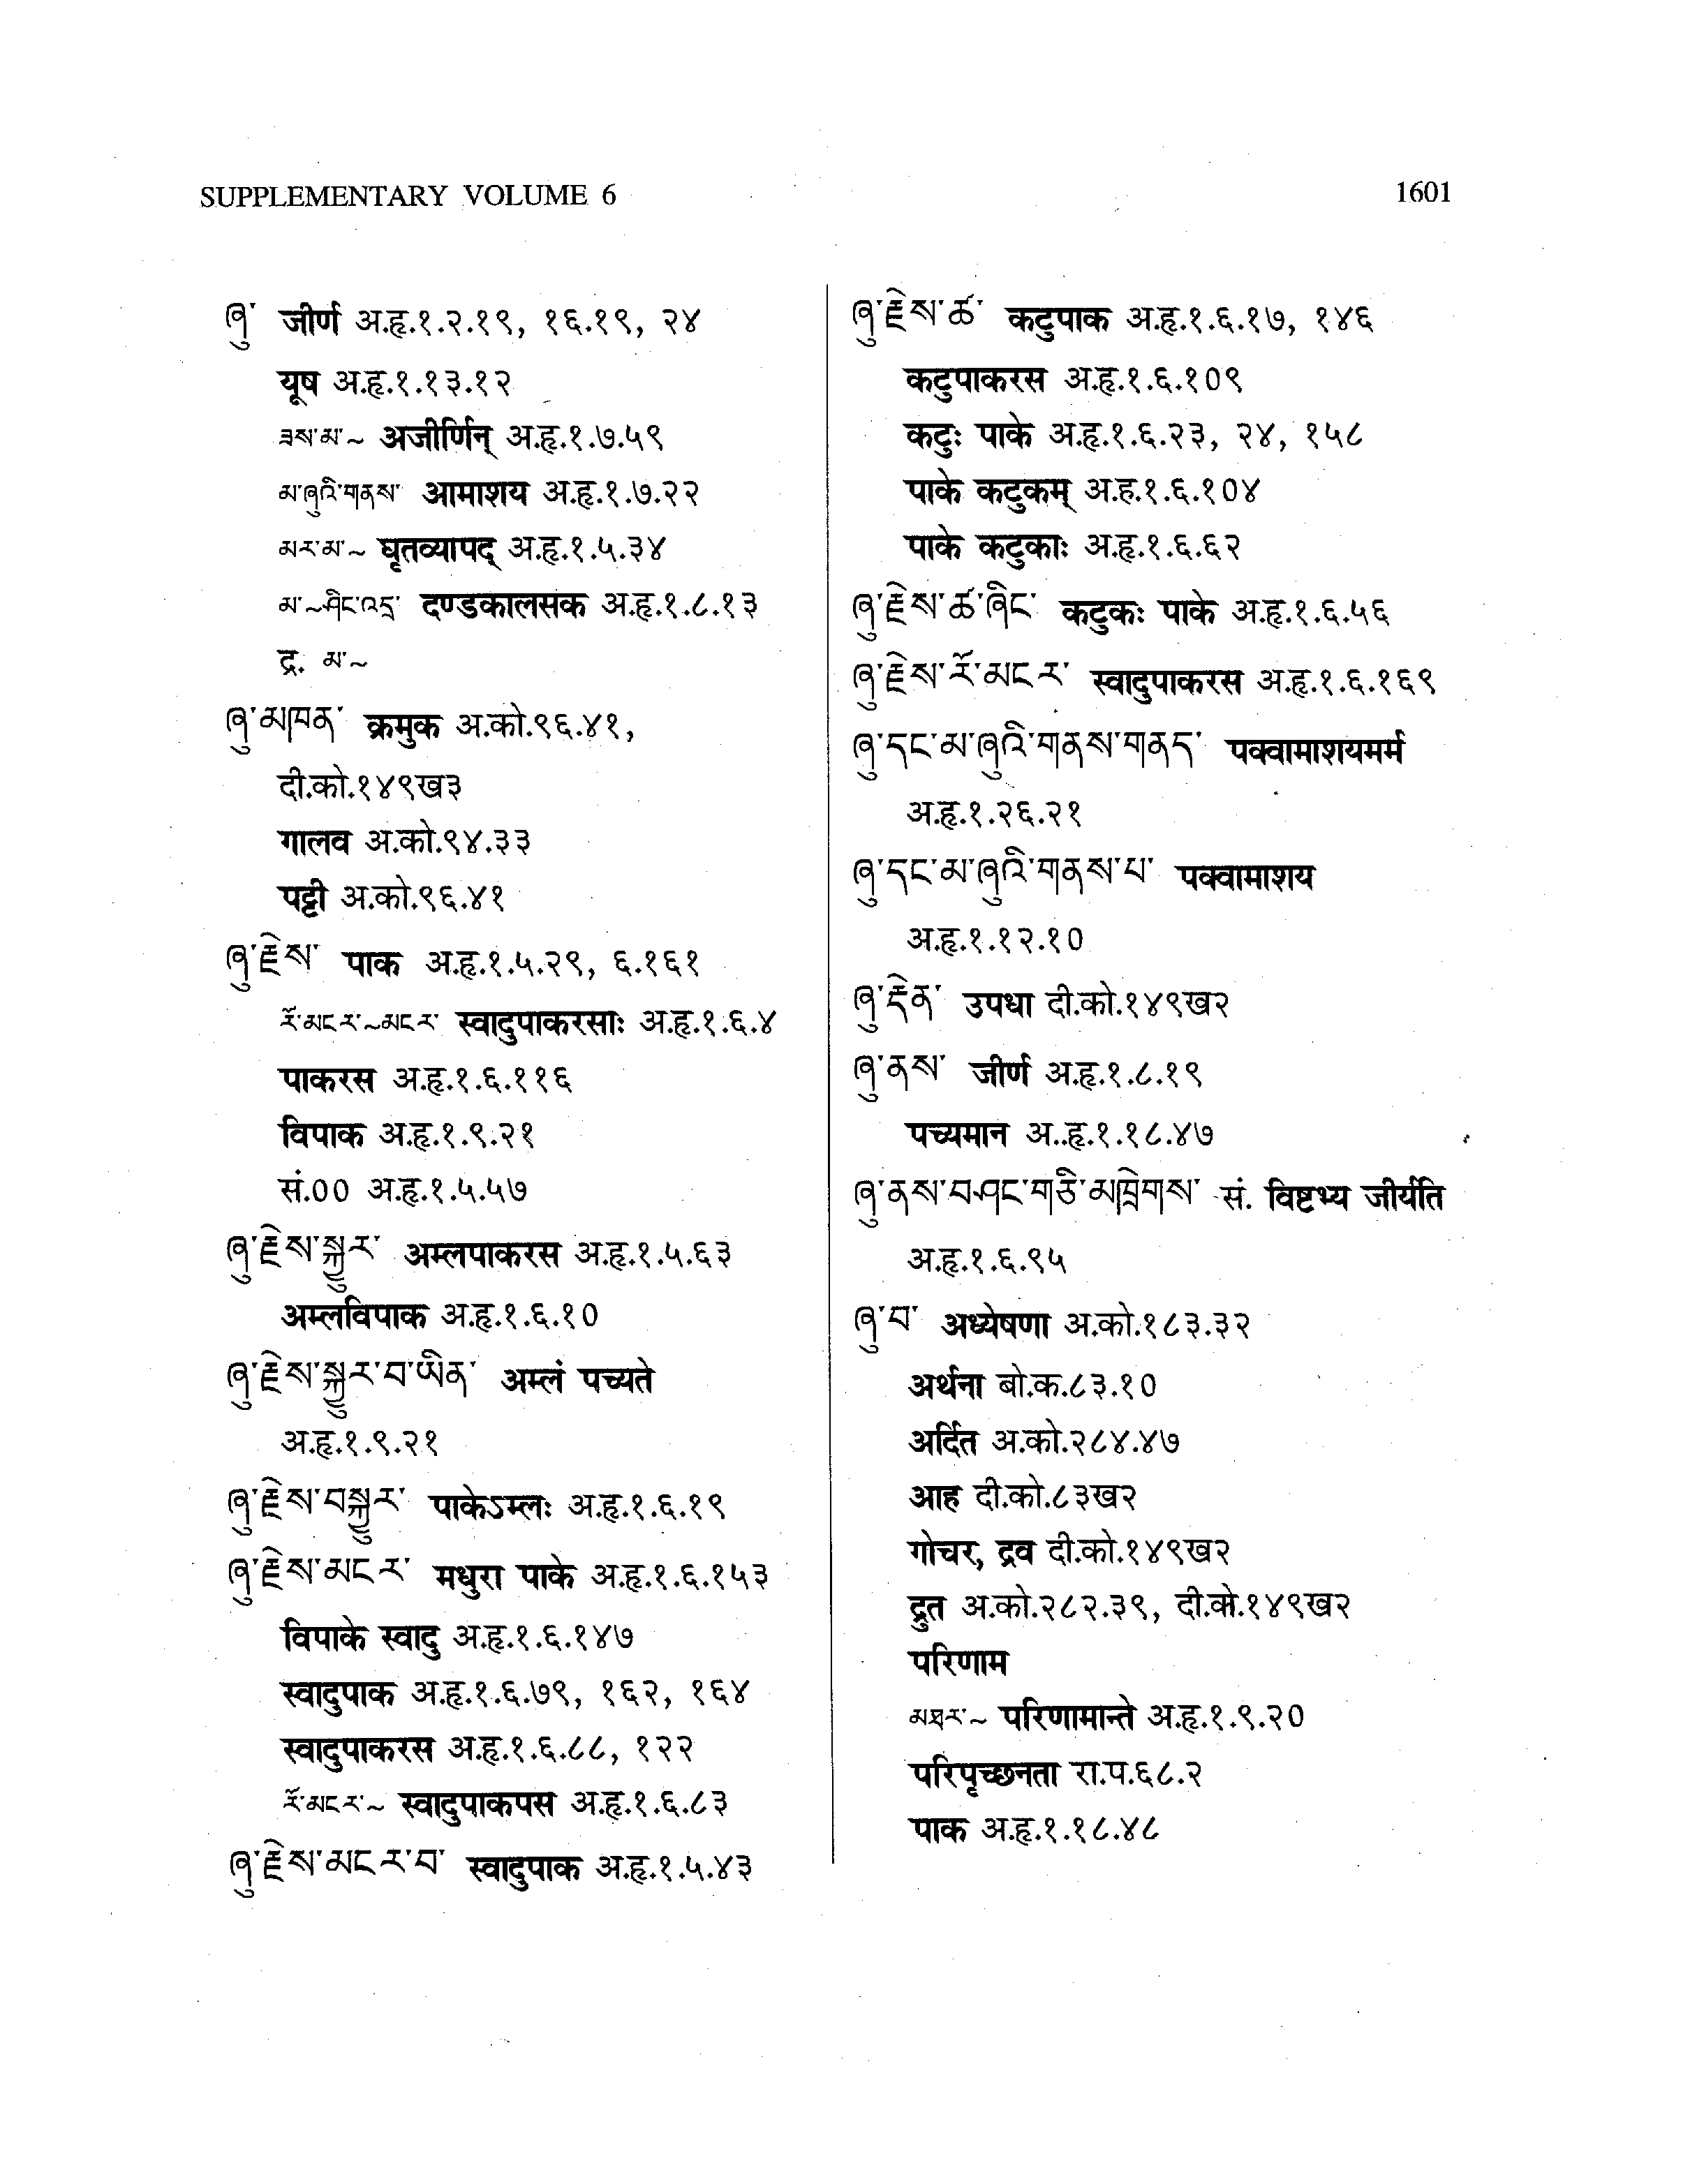 SUPPLEMENTARY VOLUME 6
1601
ཞུ་ जीर्ण अ.हृ.१.२.१९, १६.१९, २४
यूष अ.हृ.१.१३.१२
ཟས་མ་~ अजीर्णिन् अ.हृ.१.७.५९
མ་ཞུའི་གནས་ आमाशय अ.हृ.१.७.२२
མར་མ་~ घृतव्यापद् अ.हृ.१.५.३४
མ་~ཤིང་འདྲ་ दण्डकालसक अ.हृ.१.८.१३
द्र. མ་~
ཞུ་མཁན་ क्रमुक अ.को.९६.४१,
दी.को.१४९ख३
गालव अ.को.९४.३३
पट्टी अ.को.९६.४१
ཞུ་རྗེས་ पाक अ.हृ.१.५.२९, ६.१६१
རོ་མངར་~མངར་ स्वादुपाकरसाः अ.हृ.१.६.४
पाकरस अ.हृ.१.६.११६
विपाक अ.हृ.१.९.२१
सं.०० अ.हृ.१.५.५७
ཞུ་རྗེས་སྐྱུར་ अम्लपाकरस अ.हृ.१.५.६३
अम्लविपाक अ.हृ.१.६.१०
ཞུ་རྗེས་སྐྱུར་བ་ཡིན་ अम्लं पच्यते
अ.हृ.१.९.२१
ཞུ་རྗེས་བསྐྱུར་ पाकेऽम्लः अ.हृ.१.६.१९
ཞུ་རྗེས་མངར་ मधुरा पाके अ.हृ.१.६.१५३
विपाके स्वादु अ.हृ.१.६.१४७
स्वादुपाक अ.हृ.१.६.७९, १६२, १६४
स्वादुपाकरस अ.हृ.१.६.८८, १२२
རོ་མངར་~ स्वादुपाकपस अ.हृ.१.६.८३
ཞུ་རྗེས་མངར་བ་ स्वादुपाक अ.हृ.१.५.४३
ཞུ་རྗེས་ཚ་ कटुपाक अ.हृ.१.६.१७, १४६
कटुपाकरस अ.हृ.१.६.१०९
कटुः पाके अ.हृ.१.६.२३, २४, १५८
पाके कटुकम् अ.ह.१.६.१०४
पाके कटुकाः अ.हृ.१.६.६२
ཞུ་རྗེས་ཚ་ཞིང་ कटुकः पाके अ.हृ.१.६.५६
ཞུ་རྗེས་རོ་མངར་ स्वादुपाकरस अ.हृ.१.६.१६९
ཞུ་དང་མ་ཞུའི་གནས་གནད་ पक्वामाशयमर्म
अ.हृ.१.२६.२१
ཞུ་དང་མ་ཞུའི་གནས་པ་ पक्वामाशय
अ.हृ.१.१२.१०
ཞུ་རྡེན་ उपधा दी.को.१४९ख२
ཞུ་ནས་ जीर्ण अ.हृ.१.८.१९
पच्यमान अ..हृ.१.१८.४७
ཞུ་ནས་བཤང་གཅི་མཁྲེགས་ सं. विष्टभ्य जीर्यति
अ.हृ.१.६.९५
ཞུ་བ་ अध्येषणा अ.को.१८३.३२
अर्थना बो.क.८३.१०
अर्दित अ.को.२८४.४७
आह दी.को.८३ख२
गोचर, द्रव दी.को.१४९ख२
द्रुत अ.को.२८२.३९, दी.को.१४९ख२
परिणाम
མཐར་~ परिणामान्ते अ.हृ.१.९.२०
परिपृच्छनता रा.प.६८.२
पाक अ.हृ.१.१८.४८